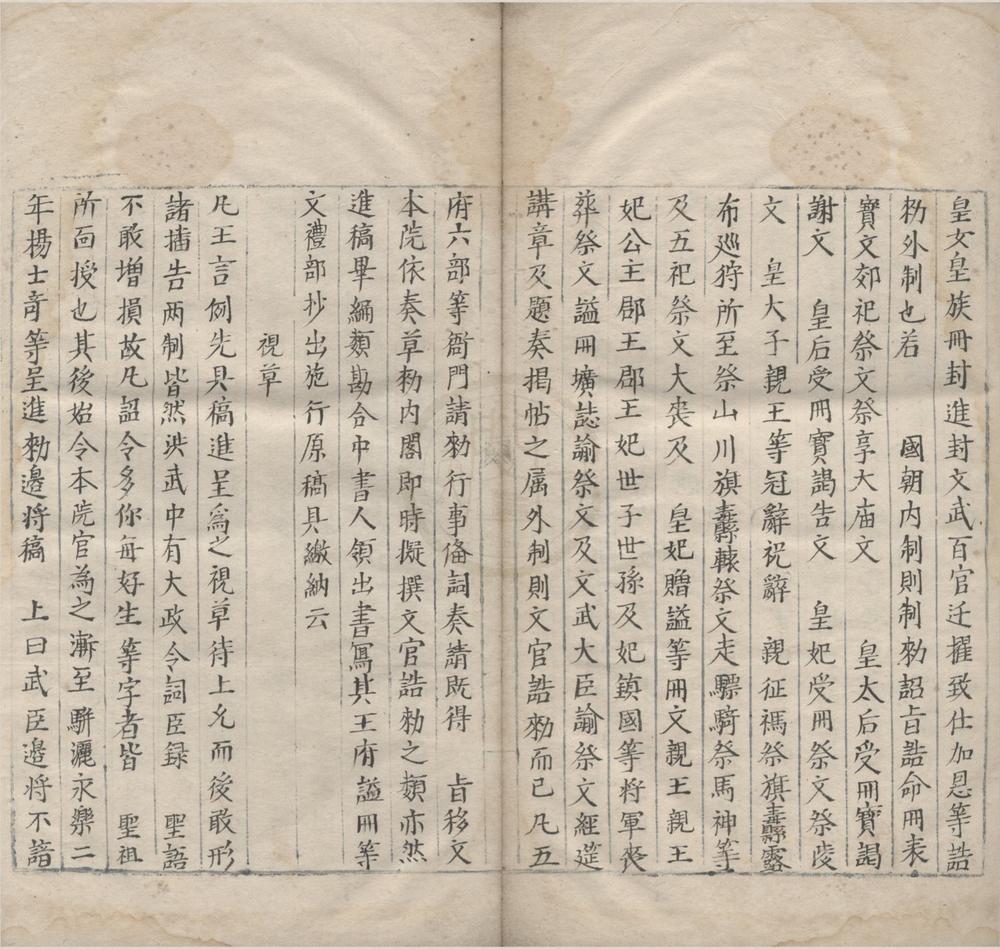 皇女皇族冊封進封文武百官迁擢致仕加恩等誥
勑外制也若　　國朝内制則制勑詔㫖誥命冊表
寳文郊祀祭文祭享大庙文　　皇太后受冊寳謁
謝文　　皇后受冊寳謁告文　　皇妃受冊祭文祭陵
文　皇大子親王等冠辭祝辭　　親征禡祭旗纛露
布巡狩所至祭山川旗纛轅祭文走驃騎祭馬神等
及五祀祭文大喪及　　皇妃贈謚等冊文親王親王
妃公主郡王郡王妃世子世孫及妃鎮國等将軍喪
葬祭文謚冊壙誌諭祭文及文武大臣諭祭文經筵
講章及題奏揭帖之属外制則文官誥勑而已凡五
府六部等衙門請勑行事俻詞奏請既得　　㫖移文
本院依奏草勑内閣即時擬撰文官誥勑之類亦然
進稿畢編類勘合中書人領出書寫其王府謚冊等
文禮部抄出施行原稿具繳納云
視草
凡王言例先具稿進呈爲之視草待上允而後敢形
諸播告两制皆然洪武中有大政令詞臣録　　聖語
不敢増損故凡詔令多你每好生等字者皆　　聖祖
所面授也其後始令本院官為之漸至駢灑永樂二
年楊士竒等呈進勑邉将稿　　上曰武臣邉将不諳